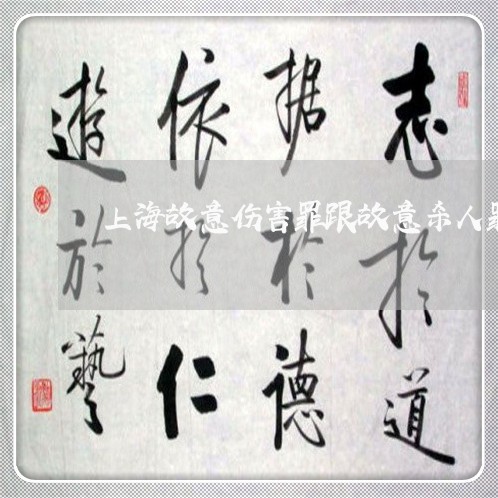 志於道
据於德
依於仁
遊於藝
上海故意伤害罪跟故意杀人罪